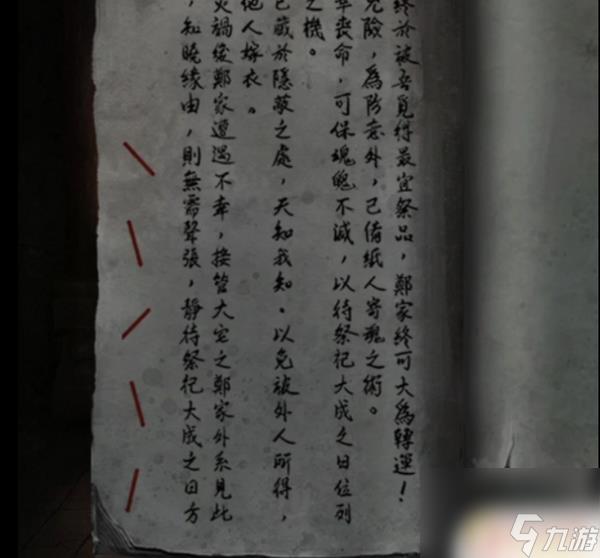 終於被吾覓得最宜祭品，鄭家終可大為轉運！
危險，為防意外，已備紙人寄魂之術。
卒喪命，可保魂魄不滅，以待祭祀大成之日位列
之機。
已藏於隱蔽之處，天知我知。以免被外人所得，
他人嫁衣。
災禍後鄭家遭遇不幸，接管大宅之鄭家外系見此
，知曉緣由，則無需聲張，靜待祭祀大成之日方
九游